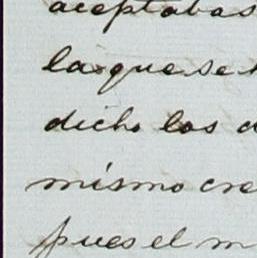 aceptabas
la que se
dicho los
mismo cre
pues el m